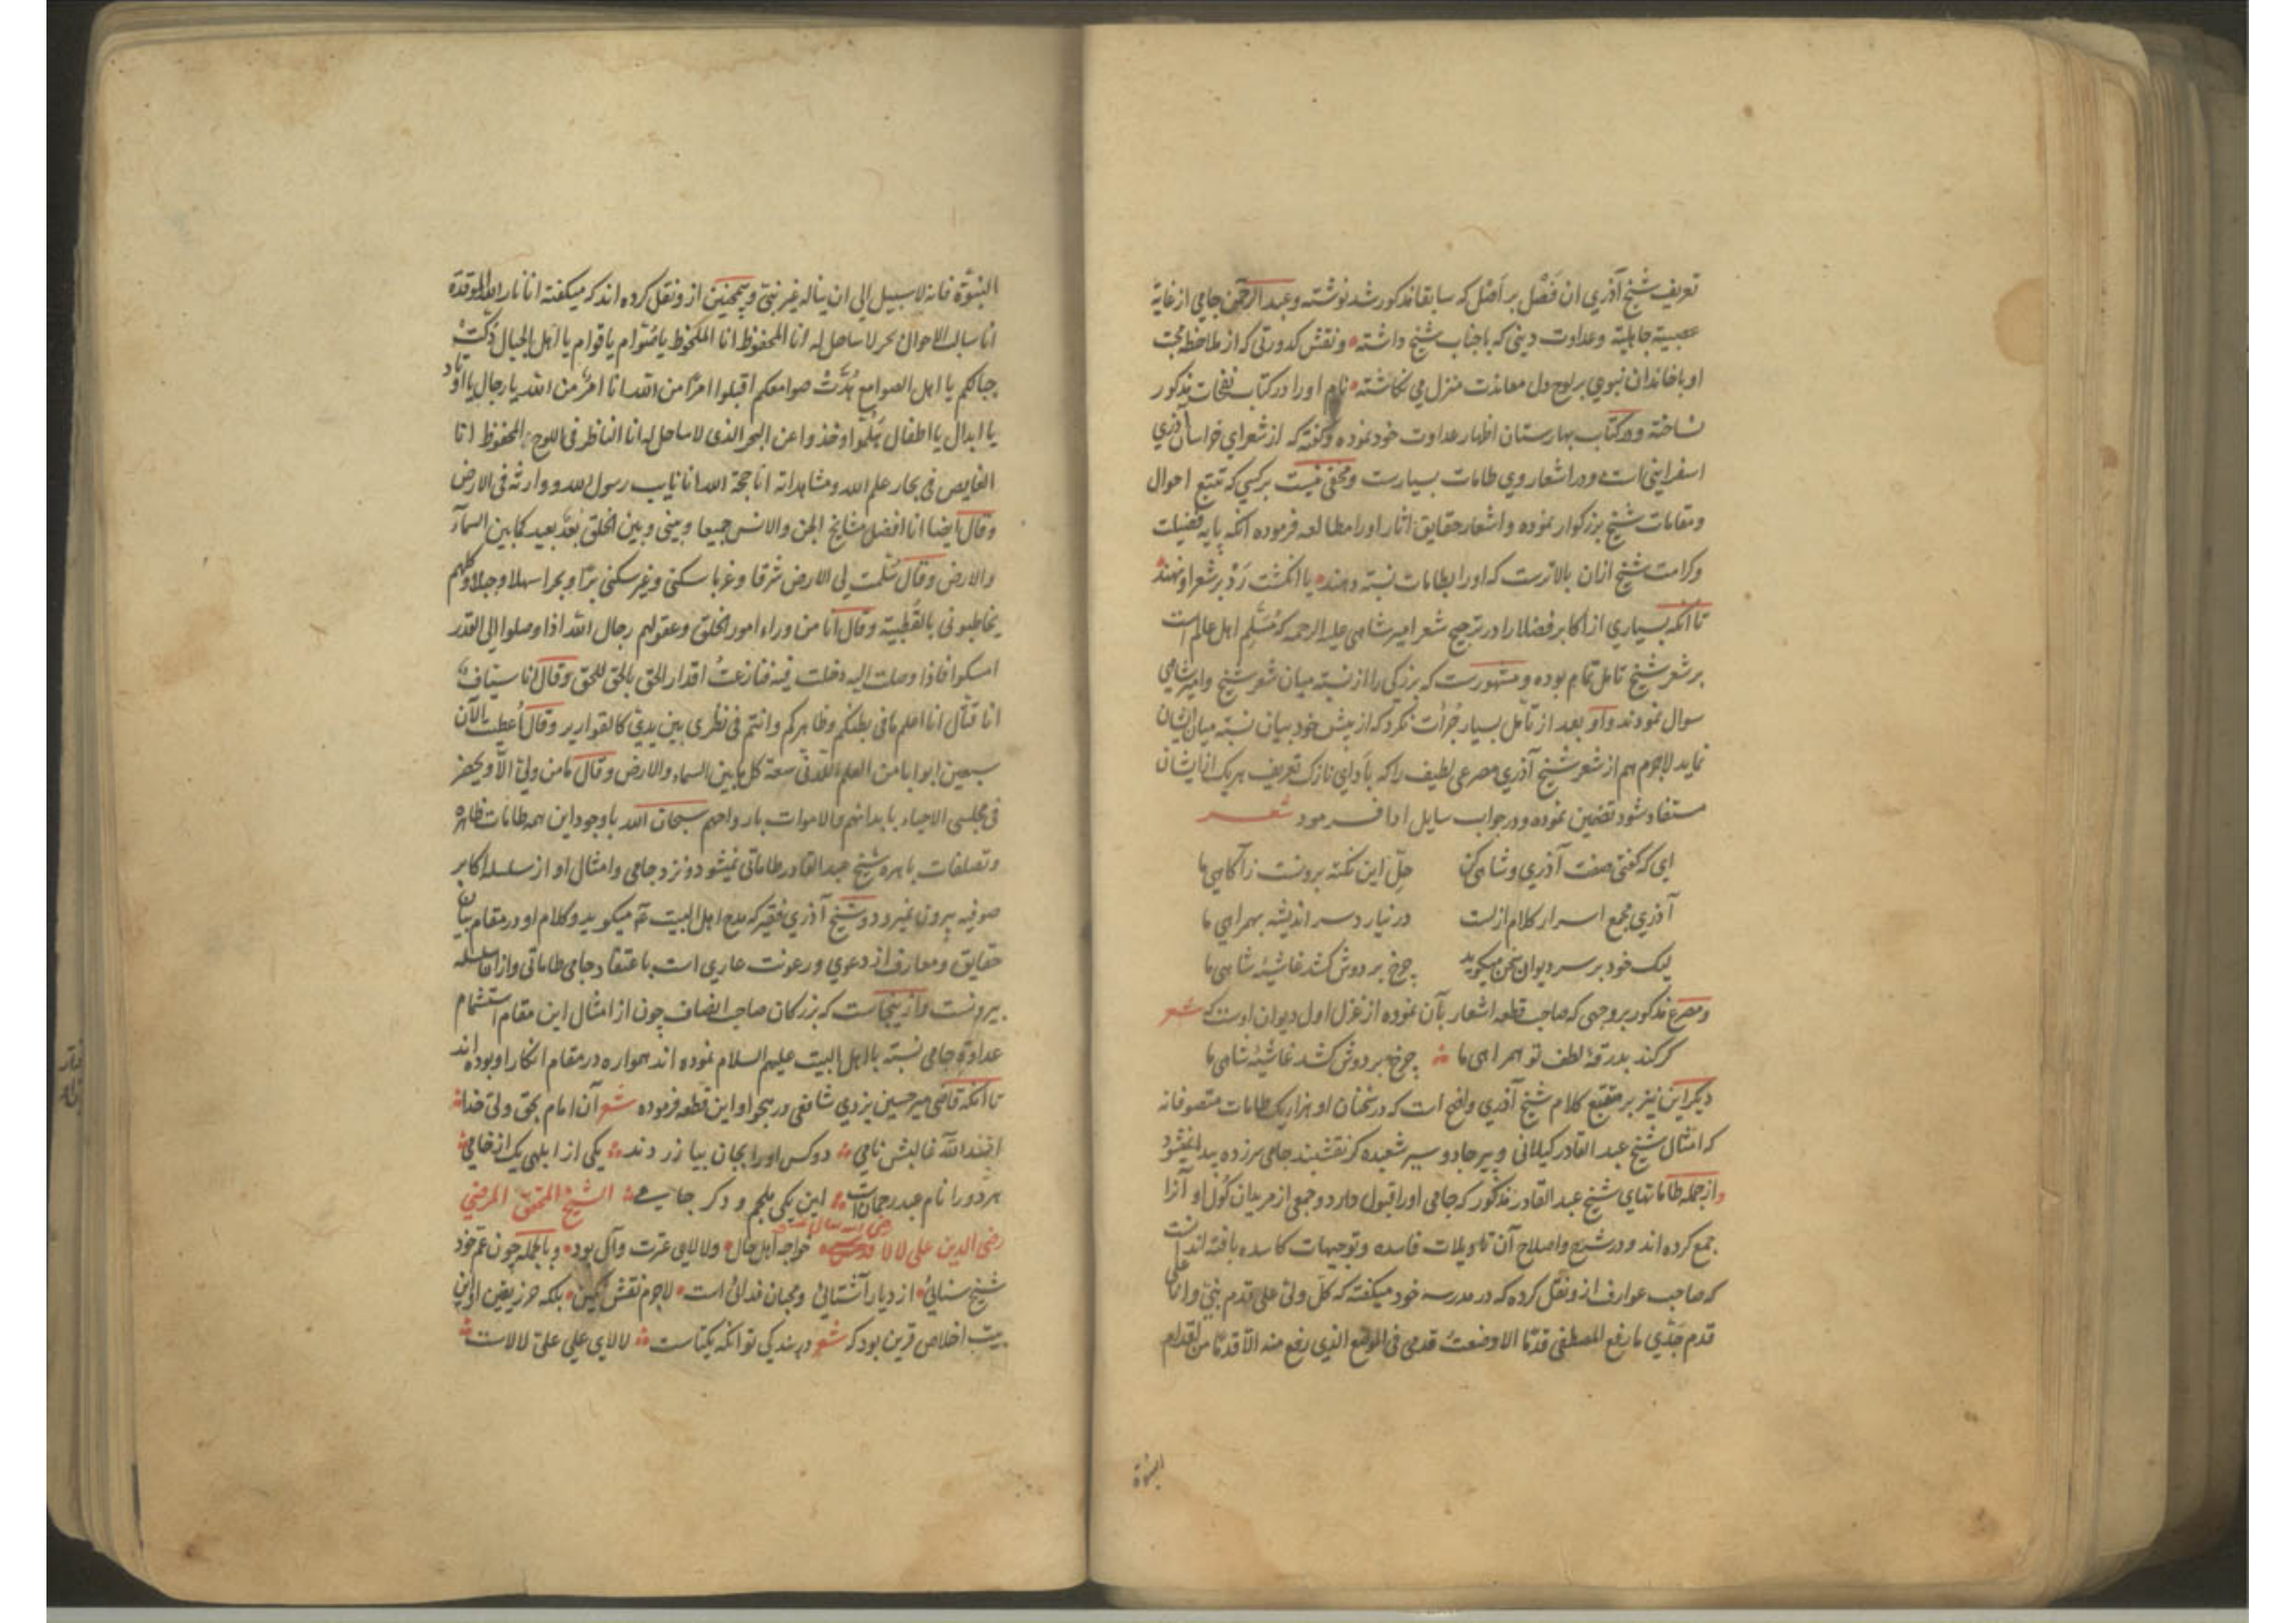 تعریف شیخ آذری ان فضل بر اصل که سابقا مذکور شد نوشته وعبد الرحمن جامی از غایة
عصبیة جاهلیة وعداوت دینی که باجناب شیخ داشته ونقش کدورتی که از ملاحظه محبت
او باخاندان نبوی بر لوح دل معاندت منزل می نکاشته نام او را در کتاب نفحات مذکور
نساخته ودر کتاب بهارستان اظهار عداوت خود نموده وکفته که از شعرای خراسان آذری
اسفراینی است ودر اشعار وی طامات بسیارست ومخفی نیست بر کسی که تتبع احوال
ومقامات شیخ بزرکوار نموده واشعار حقایق اثار اورا مطالعه فرموده انکه پایه فضیلت
وکرامت شیخ ازان بالاترست که اورا بطامات نسبة دهند یا انکشت رد بر شعر او نهند
تا انکه بسیاری از اکابر فضلا را در ترجیح شعر امیر شاهی علیه الرحمه که مسلم اهل عالم است
بر شعر شیخ تامل تمام بوده ومشهورست که بزرکی را از نسبة میان شعر شیخ وامیر شاهی
سوال نمودند واو بعد از تأمل بسیار جرأت نکرد که از پیش خود بیان نسبة میان ایشان
نماید لاجرم هم از شعر شیخ آذری مصرعی لطیف را که بادای نازک تعریف هر یک از ایشان
مستفاد شود تضمین نموده ودر جواب سایل ادا فرمود شعر
ای که کفتی صفت آذری وشاهی کن حل این نکته برونست ز آکاهی ما
آذری مجمع اسرار کلام ازلست در نیارد سر اندیشه بهمراهی ما
لیک خود بر سر دیوان سخن میکوید چرخ بر دوش کشد غاشیه شاهی ما
ومصرع مذکور بروجهی که صاحب قطعه اشعار بآن نموده از غزل اول دیوان اوست که شعر
کر کند بدرقه لطف تو همراهی ما چرخ بر دوش کشد غاشیه شاهی ما
دیکر این نیز بر متتبع کلام شیخ آذری واضح است که در سخنان او هزار یک طامات متصوفانه
که امثال شیخ عبد القادر کیلانی وپیر جادو سیر شعبده کر نقشبند جامی سر زده پیدا نمیشود
واز جمله طاماتهای شیخ عبد القادر مذکور که جامی اورا قبول دارد وجمعی از مریدان کول او آنرا
جمع کرده اند ودر شرح واصلاح آن تاویلات فاسده وتوجیهات کاسده بافته اند انست
که صاحب عوارف از ونقل کرده که در مدرسه خود میکفته که کل ولی علی قدم نبی وانا علی
قدم جدی ما رفع المصطفی قدما الا وضعت قدمی فی الموضع الذی رفع منه الا قدما من اقدام
النبوة
النبوة فانه لا سبیل الی ان یناله غیر نبی وهمچنین از ونقل کرده اند که میکفته انا نار الله الموقدة
انا سالب الاحوال بحر لا ساحل له انا المحفوظ انا الملحوظ یا صوام یا قوام یا اهل الجبال دکت
جبالکم یا اهل الصوامع هدت صوامعکم اقبلوا امرا من الله انا امر من الله یا رجال یا اوتاد
یا ابدال یا اطفال هلموا وخذوا عن البحر الذی لا ساحل له انا الناظر فی اللوح المحفوظ انا
الغایص فی بحار علم الله ومشاهداته انا حجة الله انا نایب رسول الله ووارثه فی الارض
وقال ایضا انا افضل مشایخ الجن والانس جمیعا وبینی وبین الخلق بعد بعید کما بین السمآء
والارض وقال سلمت لی الارض شرقا وغربا سکنی وغیر سکنی برا وبحرا سهلا وجبلا وکلهم
یخاطبونی بالقطبیة وقال انا من وراء امور الخلق وعقولهم رجال الله اذا وصلوا الی القدر
امسکوا فاذا وصلت الیه دخلت فیه فنازعت اقدار الحق بالحق للحق وقال انا سیاف
انا قتال انا اعلم ما فی بطنکم وظاهرکم وانتم فی نظری بین یدی کالقواریر وقال اعطیت الآن
سبعین ابوابا من العلم اللدنی سعة کل ما بین السماء والارض وقال ما من ولی الا ویحضر
فی مجلسی الاحیاء بابدانهم والاموات بارواحهم سبحان الله باوجود این همه طامات ظاهره
وتصلفات باهره شیخ عبد القادر طاماتی نمیشود ونزد جامی وامثال او از سلسله اکابر
صوفیه بیرون نمیرود وشیخ آذری فقیر که مدح اهل البیت ع میکوید وکلام او در مقام بیان
حقایق ومعارف از دعوی ورعونت عاری است باعتقاد جامی طاماتی واز ان سلسله
بیرونست واز ینجاست که بزرکان صاحب انصاف چون از امثال این مقام استشمام
عداوة جامی نسبة بااهل البیت علیهم السلام نموده اند همواره در مقام انکار او بوده اند
تا انکه قاضی میر حسین یزدی شافعی در هجو او این قطعه فرموده شعر آن امام بحق ولی خدا
اسد الله غالبش نامی دو کس اورا بجان بیازردند یکی از ابلهی یک از خامی
هر دو را نام عبد رحمانست این یکی ملجم ودکر جامی الشیخ المحقق المرضی
رضی الدین علی لالا خواجه اهل حال ولالای عترت وآل بود وبالجمله چون عم خود
شیخ سنائی از دیار آشنائی ومحبان فدائی است لاجرم نقش نکین بلکه حرز یقین او این
بیت اخلاص قرین بود که شعر در بندکی تو انکه یکتاست لالای علی علی لالاست